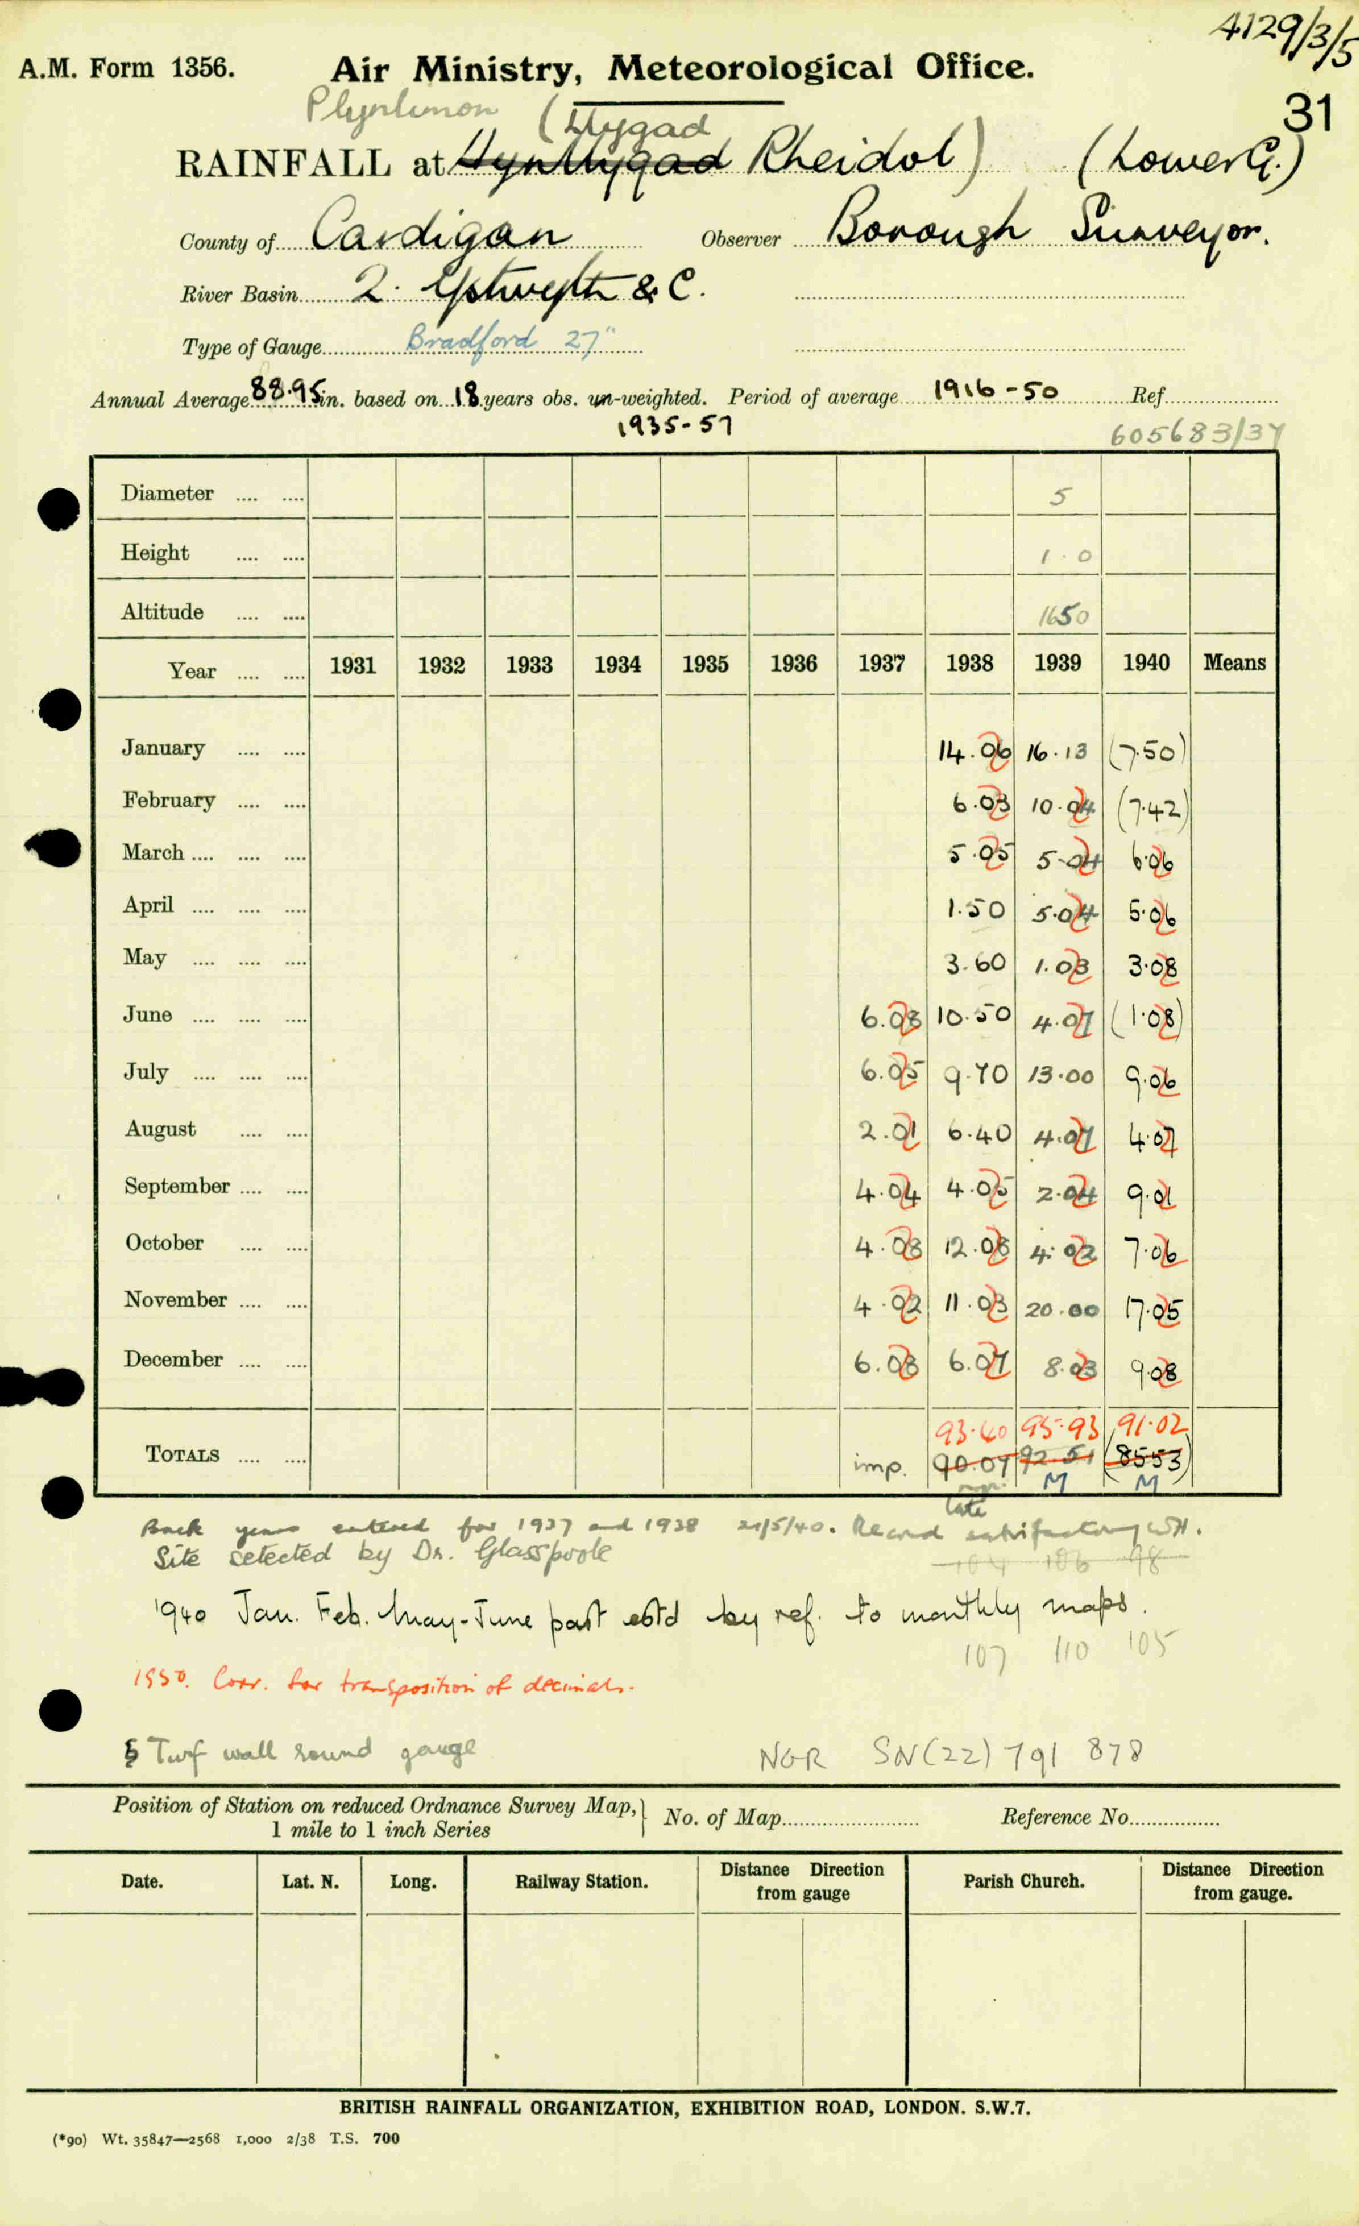 4129/3/5
A.M. Form 1356. Air Ministry, Meteorological Office.
31
Plynlimon (Llygad
RAINFALL at Rheidol) (Lower G.)
County of Cardigan Observer Borough Surveyor.
River Basin 2. Ystwyth & C.
Type of Gauge Bradford 27"
Annual Average 88.95 in. based on 18 years obs. un-weighted. Period of average 1916-50 Ref.
1935-57 605683/37
Diameter .... .... 5
Height .... .... 1.0
Altitude .... .... 1650
Year .... .... 1931 1932 1933 1934 1935 1936 1937 1938 1939 1940 Means
January .... .... 14.06 16.13 (7.50)
February .... .... 6.03 10.04 (7.42)
March .... .... .... 5.05 5.04 6.06
April .... .... .... 1.50 5.04 5.06
May .... .... .... 3.60 1.03 3.08
June .... .... .... 6.08 10.50 4.07 (1.08)
July .... .... .... 6.05 9.70 13.00 9.06
August .... .... 2.01 6.40 4.07 4.07
September .... .... 4.04 4.05 2.04 9.01
October .... .... 4.08 12.08 4.02 7.06
November .... .... 4.02 11.03 20.00 17.05
December .... .... 6.03 6.07 8.03 9.08
93.60 95.93 91.02
TOTALS .... .... imp. 90.07 92.51 (85.53)
M M
late
Back years entered for 1937 and 1938 21/5/40. Record satisfactory WH.
Site selected by Dr. Glasspoole
104 106 98
1940 Jan. Feb. May-June part estd by ref. to monthly maps.
107 110 105
1950. Corr. for transposition of decimals.
§ Turf wall round gauge NGR SN(22) 791 878
Position of Station on reduced Ordnance Survey Map, } No. of Map Reference No.
1 mile to 1 inch Series
Date. Lat. N. Long. Railway Station. Distance Direction from gauge Parish Church. Distance Direction from gauge.
BRITISH RAINFALL ORGANIZATION, EXHIBITION ROAD, LONDON. S.W.7.
(*90) Wt. 35847—2568 1,000 2/38 T.S. 700